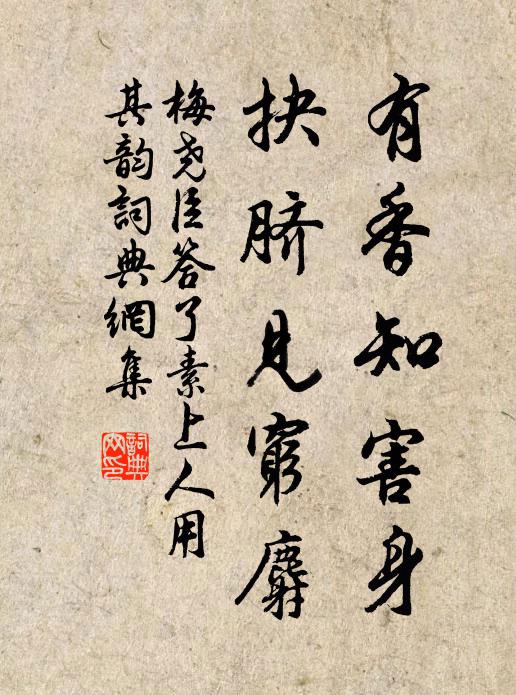 有香知害身
抉脐見窮麝
梅尧臣答了素上人用
其韵詞典網集
詞典网印